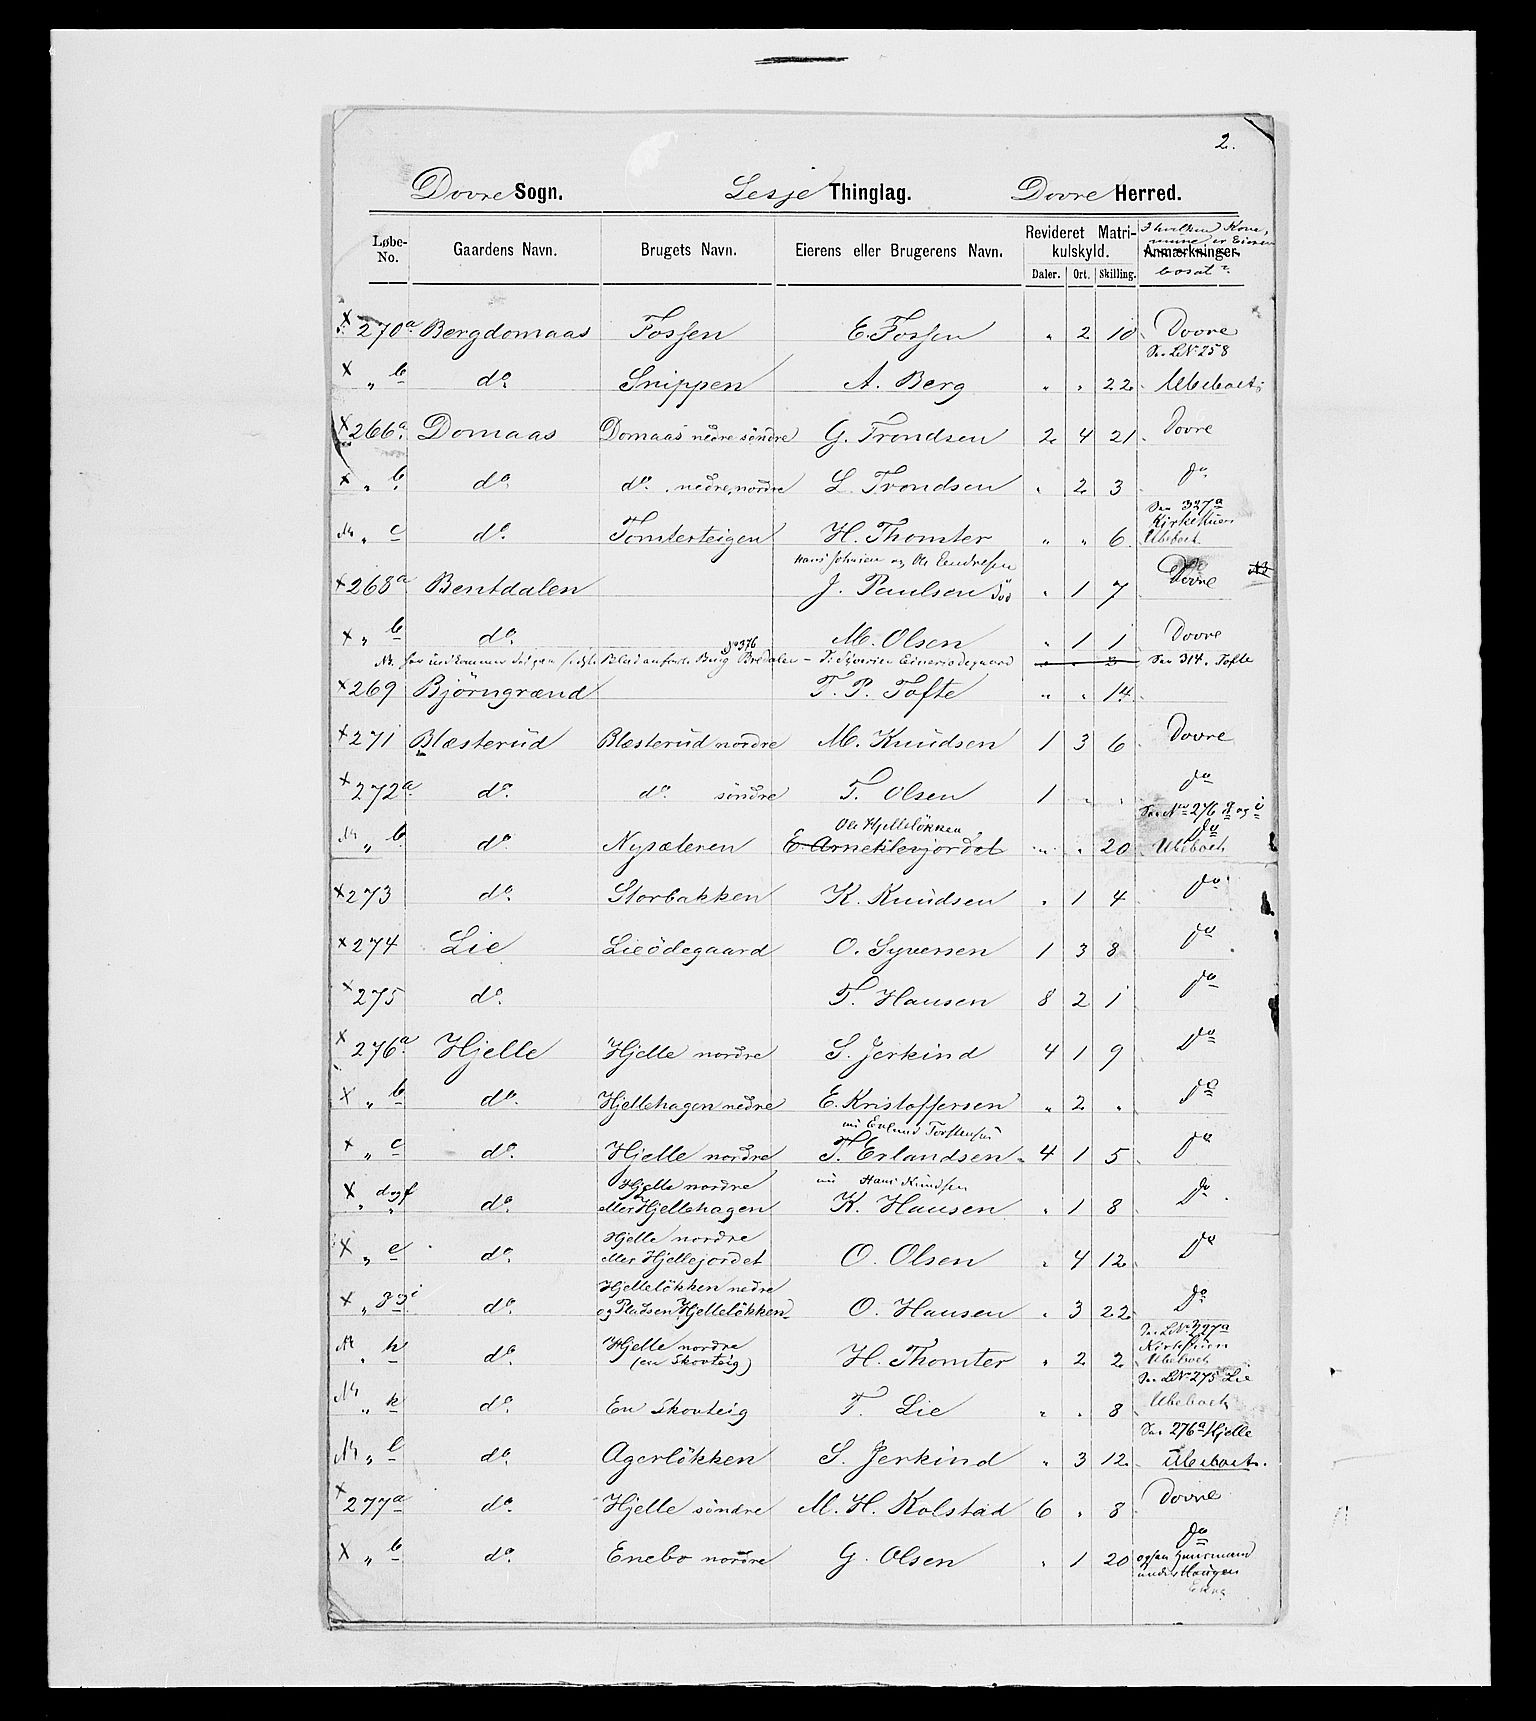 2.
Dovre Sogn. Lesje Thinglag. Dovre Herred.
Løbe-No. Gaardens Navn. Brugets Navn. Eierens eller Brugerens Navn. Revideret Matrikulskyld. Anmærkninger.
I hvilken Kommune er Eieren bosat?
Daler. Ort. Skilling.
x 270a Bergdomaas Fossen E. Fossen " 2 10 Dovre
x " b do. Snippen A. Berg " " 22 Se LNo 258 Ubeboet
x 266a Domaas Domaas nedre söndre G. Trondsen 2 4 21 Dovre
x " b do. do. nedre nordre L. Trondsen " 2 3 do
" c do. Tomterteigen H. Thomter " " 6 Se 327a Kirkestuen Ubeboet
Hans Johnsen og Ole Endresen
x 268a Bentdalen J. Paulsen " 1 7 Dovre
x " b do. M. Olsen " 1 1 Dovre
No 376
Se 314. Tofte
x 269 Björngrænd T. P. Tofte " " 14
x 271 Blæsterud Blæsterud nordre M. Knudsen 1 3 6 Dovre
x 272a do. do. söndre T. Olsen 1 " " do
Se No 276 g og i
Ole Hjellelökken
" b do. Nysæteren E. Arneklevjordet " " 20 do Ubeboet
x 273 do. Storbakken K. Knudsen " 1 4 do
x 274 Lie Lieödegaard O. Syversen 1 3 8 do
x 275 do. T. Hansen 8 2 1 do
x 276a Hjelle Hjelle nordre S. Jerkind 4 1 9 do
x " b do. Hjellehagen nedre E. Kristoffersen " 2 " do
nu Erland Torstensen
x " c do. Hjelle nordre T. Erlandsen 4 1 5 do
nu Hans Knudsen
x " d og f do. Hjelle nordre eller Hjellehagen K. Hansen " 1 8 do
x " e do. Hjelle nordre eller Hjellejordet O. Olsen " 4 12 do
x " g og i do. Hjellelökken nedre og Pladsen Hjellelökken O. Hansen " 3 22 do
" h do. Hjelle nordre (en Skovteig) H. Thomter " 2 2 Se LNo 327a Kirkestuen Ubeboet
" k do. En Skovteig T. Lie " " 8 Se LNo 275 Lie Ubeboet
" l do. Agerlökken S. Jerkind " 3 12 Se 276a Hjelle Ubeboet.
x 277a do. Hjelle söndre M. H. Kolstad 6 " 8 Dovre
x " b do. Enebo nordre G. Olsen " 1 20 do
ogsaa Huusmand
under Haugen